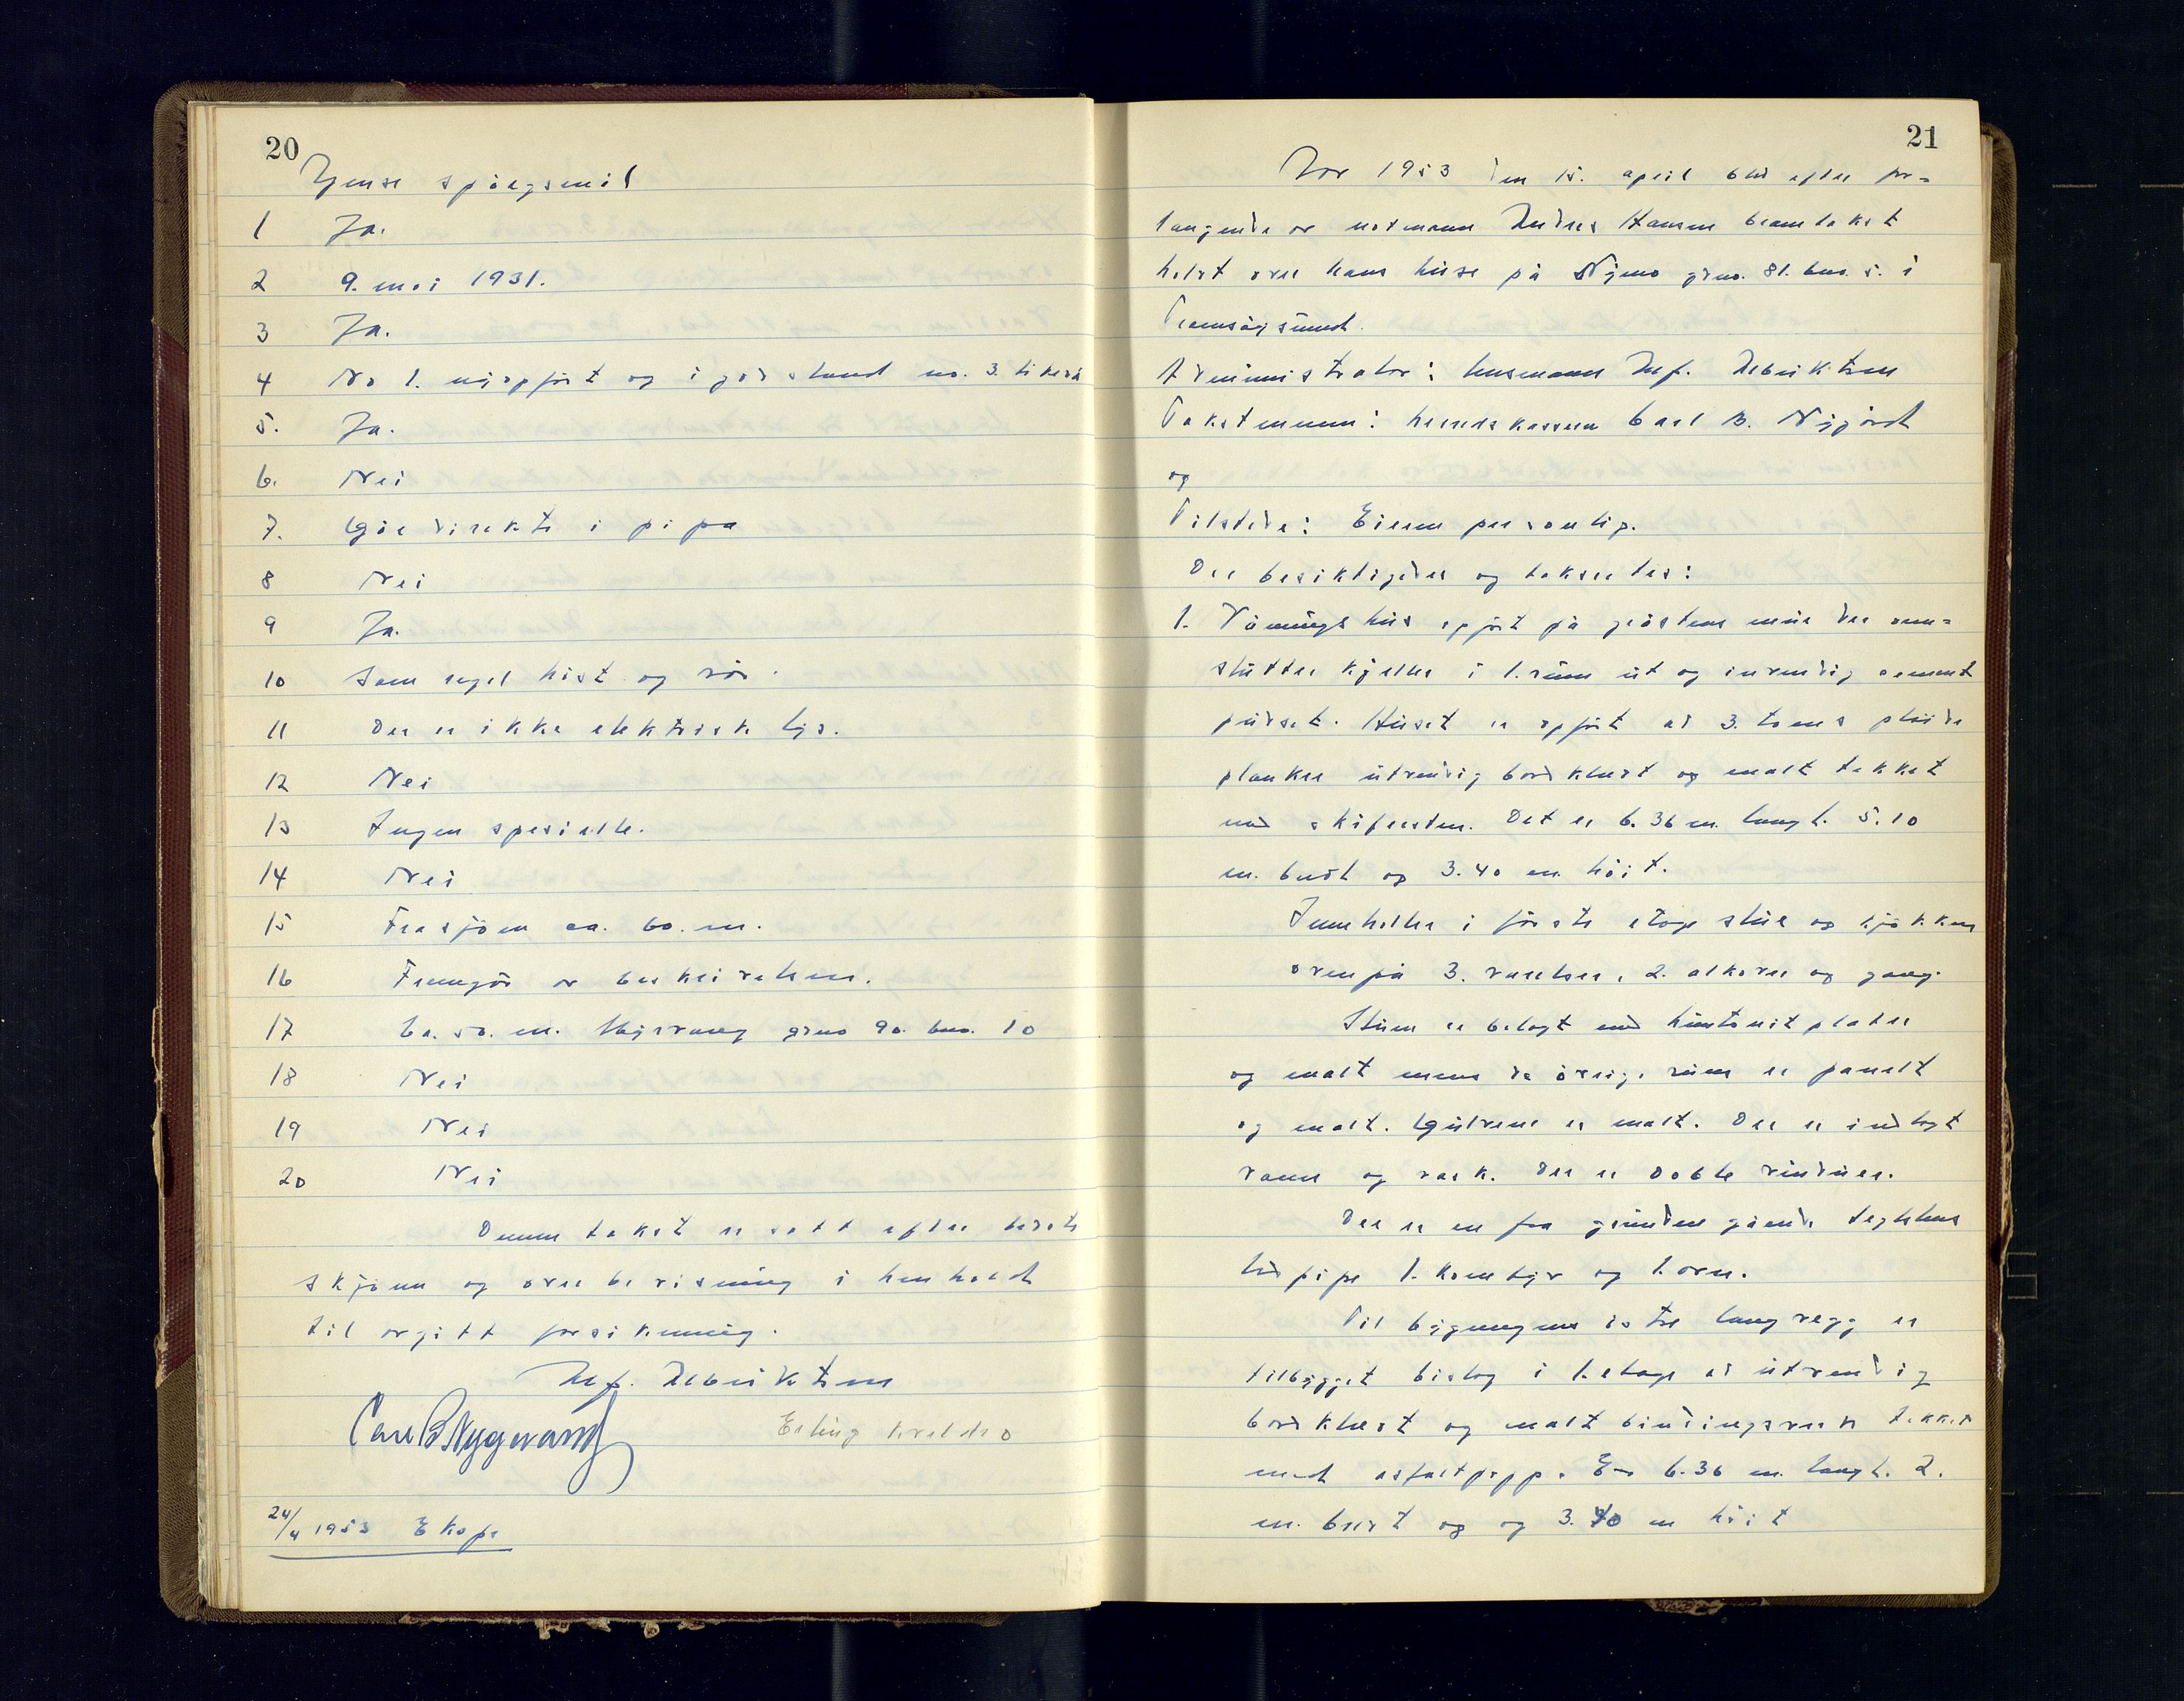 20
spörgsmål
1 Ja.
2 9. mai 1931.
3 Ja.
4 No 1. nyopfört og i god stand no. 3. likeså
5. Ja.
6. Nei
7. Går direkte i pipa
8 Nei
9 Ja.
10 Som regel höst og vår.
11 Der er ikke elektrisk lys.
12 Nei
13 Ingen spesielle.
14 Nei
15 Fra sjöen ca. 60. m.
16 Fremgår av beskrivelsen.
17 Ca. 50. m. grno 90. bno. 10
18 Nei
19 Nei
20 Nei
Denne takst er satt efter beste
skjönn og overbevisning i henhold
til avgitt forsikring.
Alf. Albriktsen
Carl B Nygaard Erling Kveldro
24/4 1953 E kopi
21
År 1953 den 15. april blev efter for=
langende av notmann Andres Hansen branntakst
holdt over hans huse på grno. 81. bno. 5. i
Tromsöysund.
Administrator: lensmann Alf. Albriktsen
Takstmenn: herredskasserer Carl B. Nygård
og
Tilstede: Eieren personlig.
Der besiktigedes og taksertes:
1. Våningshus opfört på gråstens mur der om=
slutter kjeller i 1. rum ut og invendig sement
pudset. Huset er opfört av 3. toms plöide
planker utvendig bordklædt og malt tekket
med skifersten. Det er 6.36 m. langt. 5.10
m. bredt og 3.40 m höit.
Inneholder i förste etage stue og kjökken
ovenpå 3. værelser, 2. alkover og gang.
Stuen er belagt med huntonit plater
og malt mens de övrige rum er panelt
og malt. Gulvene er malt. Der er indlagt
vann og vask. Der er doble vinduer.
Der er en fra grunden gående teglstens
lud pipe 1. komfyr og 1. ovn.
Til bygningens östre langvegg er
tilbygget bislag i 1. etage av utvendig
bordklædt og malt bindingsverk tekket
med asfaltpapp. Er 6.36 m. langt. 2.
m. bredt og og 3.40 m höit